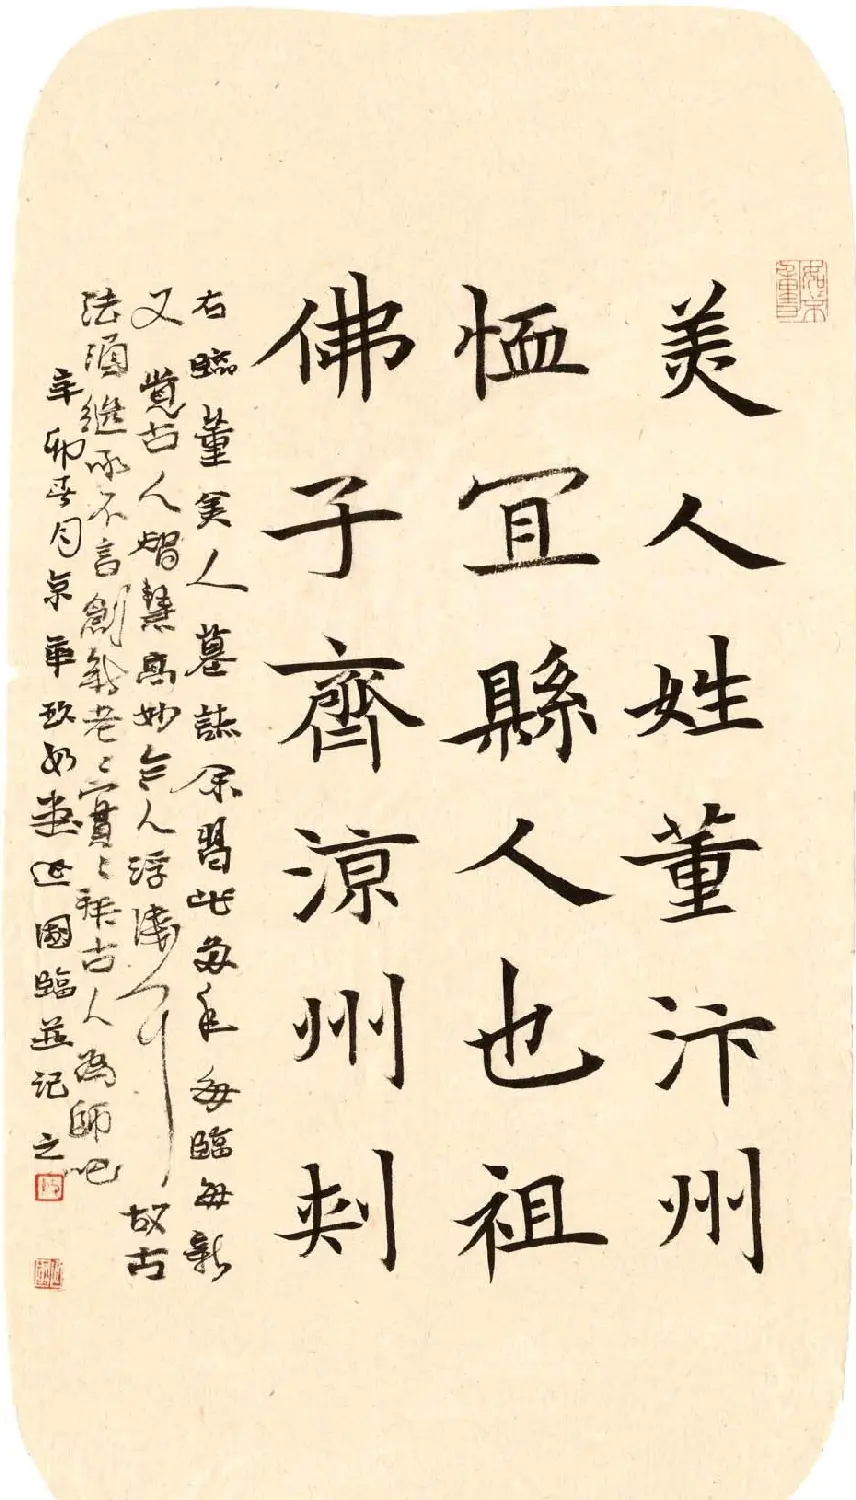 美人姓董汴州
恤宜縣人也祖
佛子齊涼州刾
右臨董美人墓誌余習此多年每臨每新
又覺古人智慧高妙今人浮淺 故古
法須繼承不言創新老老實實 古人為師吧
辛卯春月京華 國臨並記之